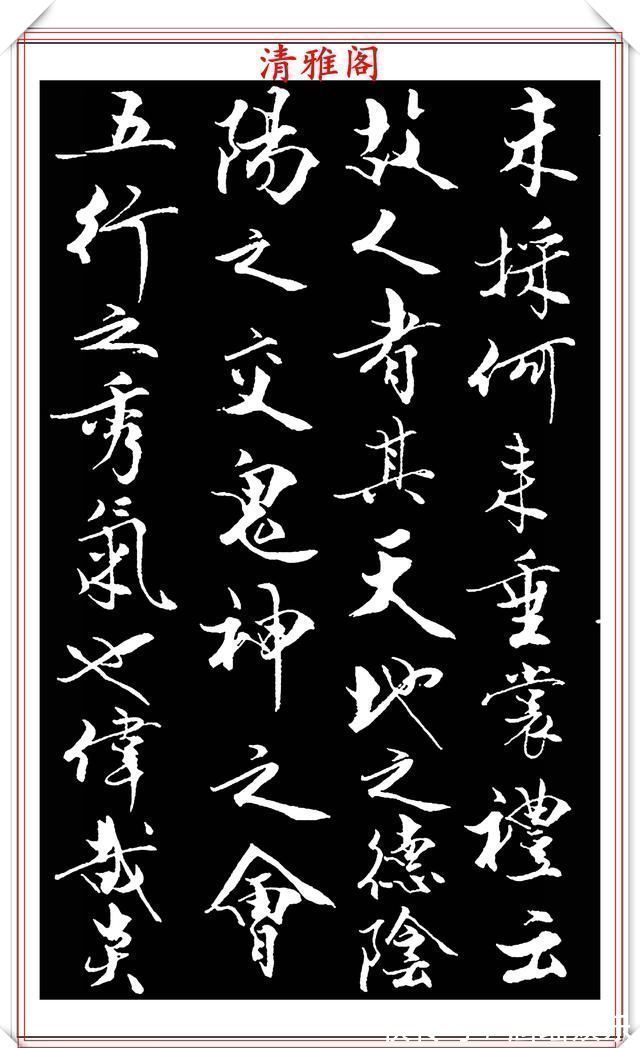 清雅阁
未採何未垂裳禮云
故人者其天地之德陰
陽之交鬼神之會
五行之秀氣也偉哉炎